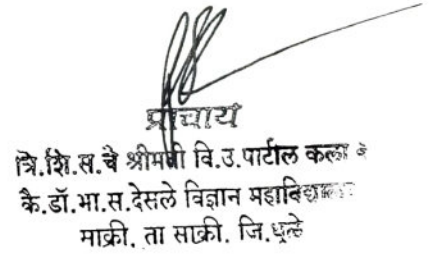 प्राचार्य
त्रि.शि.स.चे श्रीमती वि.उ.पाटील कला व
कै.डॉ.भा.स.देसले विज्ञान महाविद्यालय
साक्री, ता साक्री. जि.धुळे